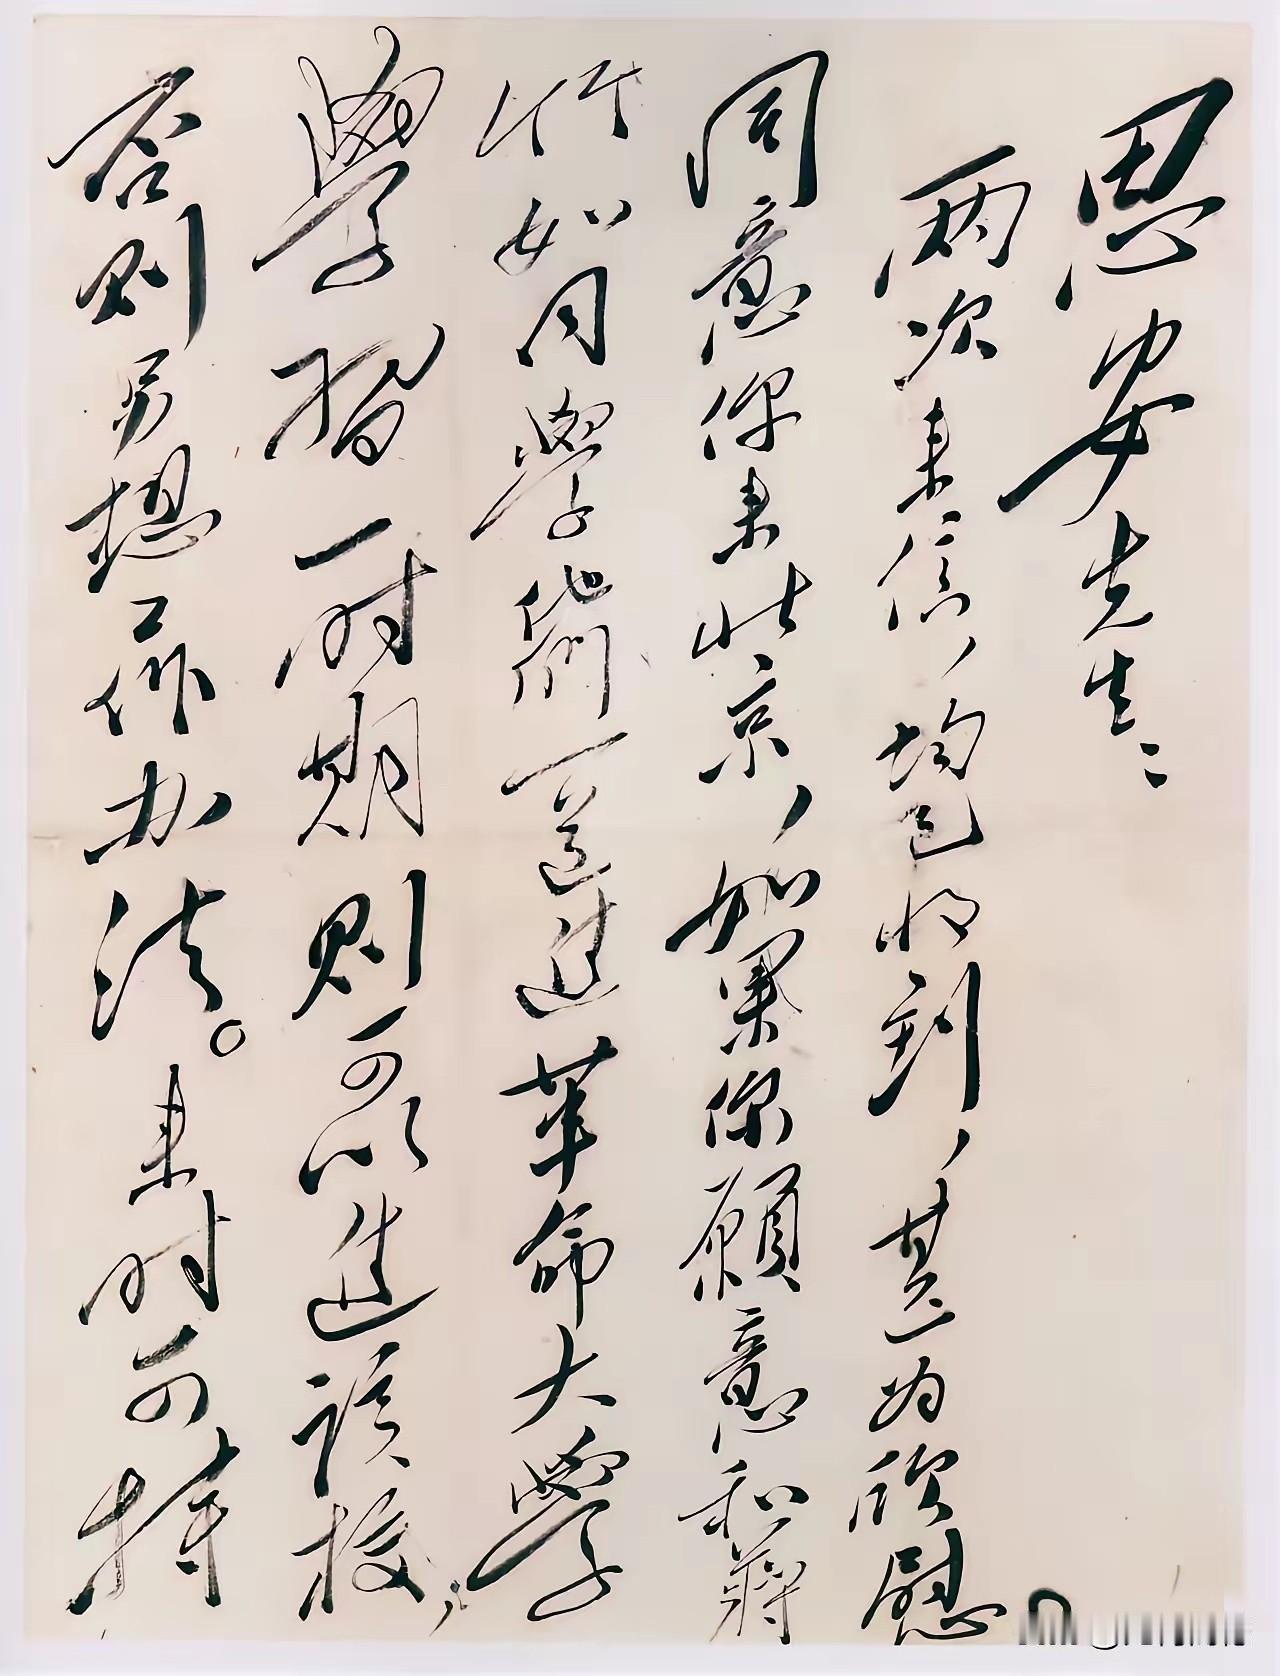 思安先生：
两次来信，均已收到，甚为欣慰
同意你来北京，如果你愿意和蒋
竹如同學他们一道进革命大學
學習一时期则可以进该校；
否则另想工作办法。来时可持